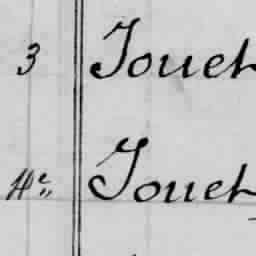 3 Jouet
4e,, Jouet